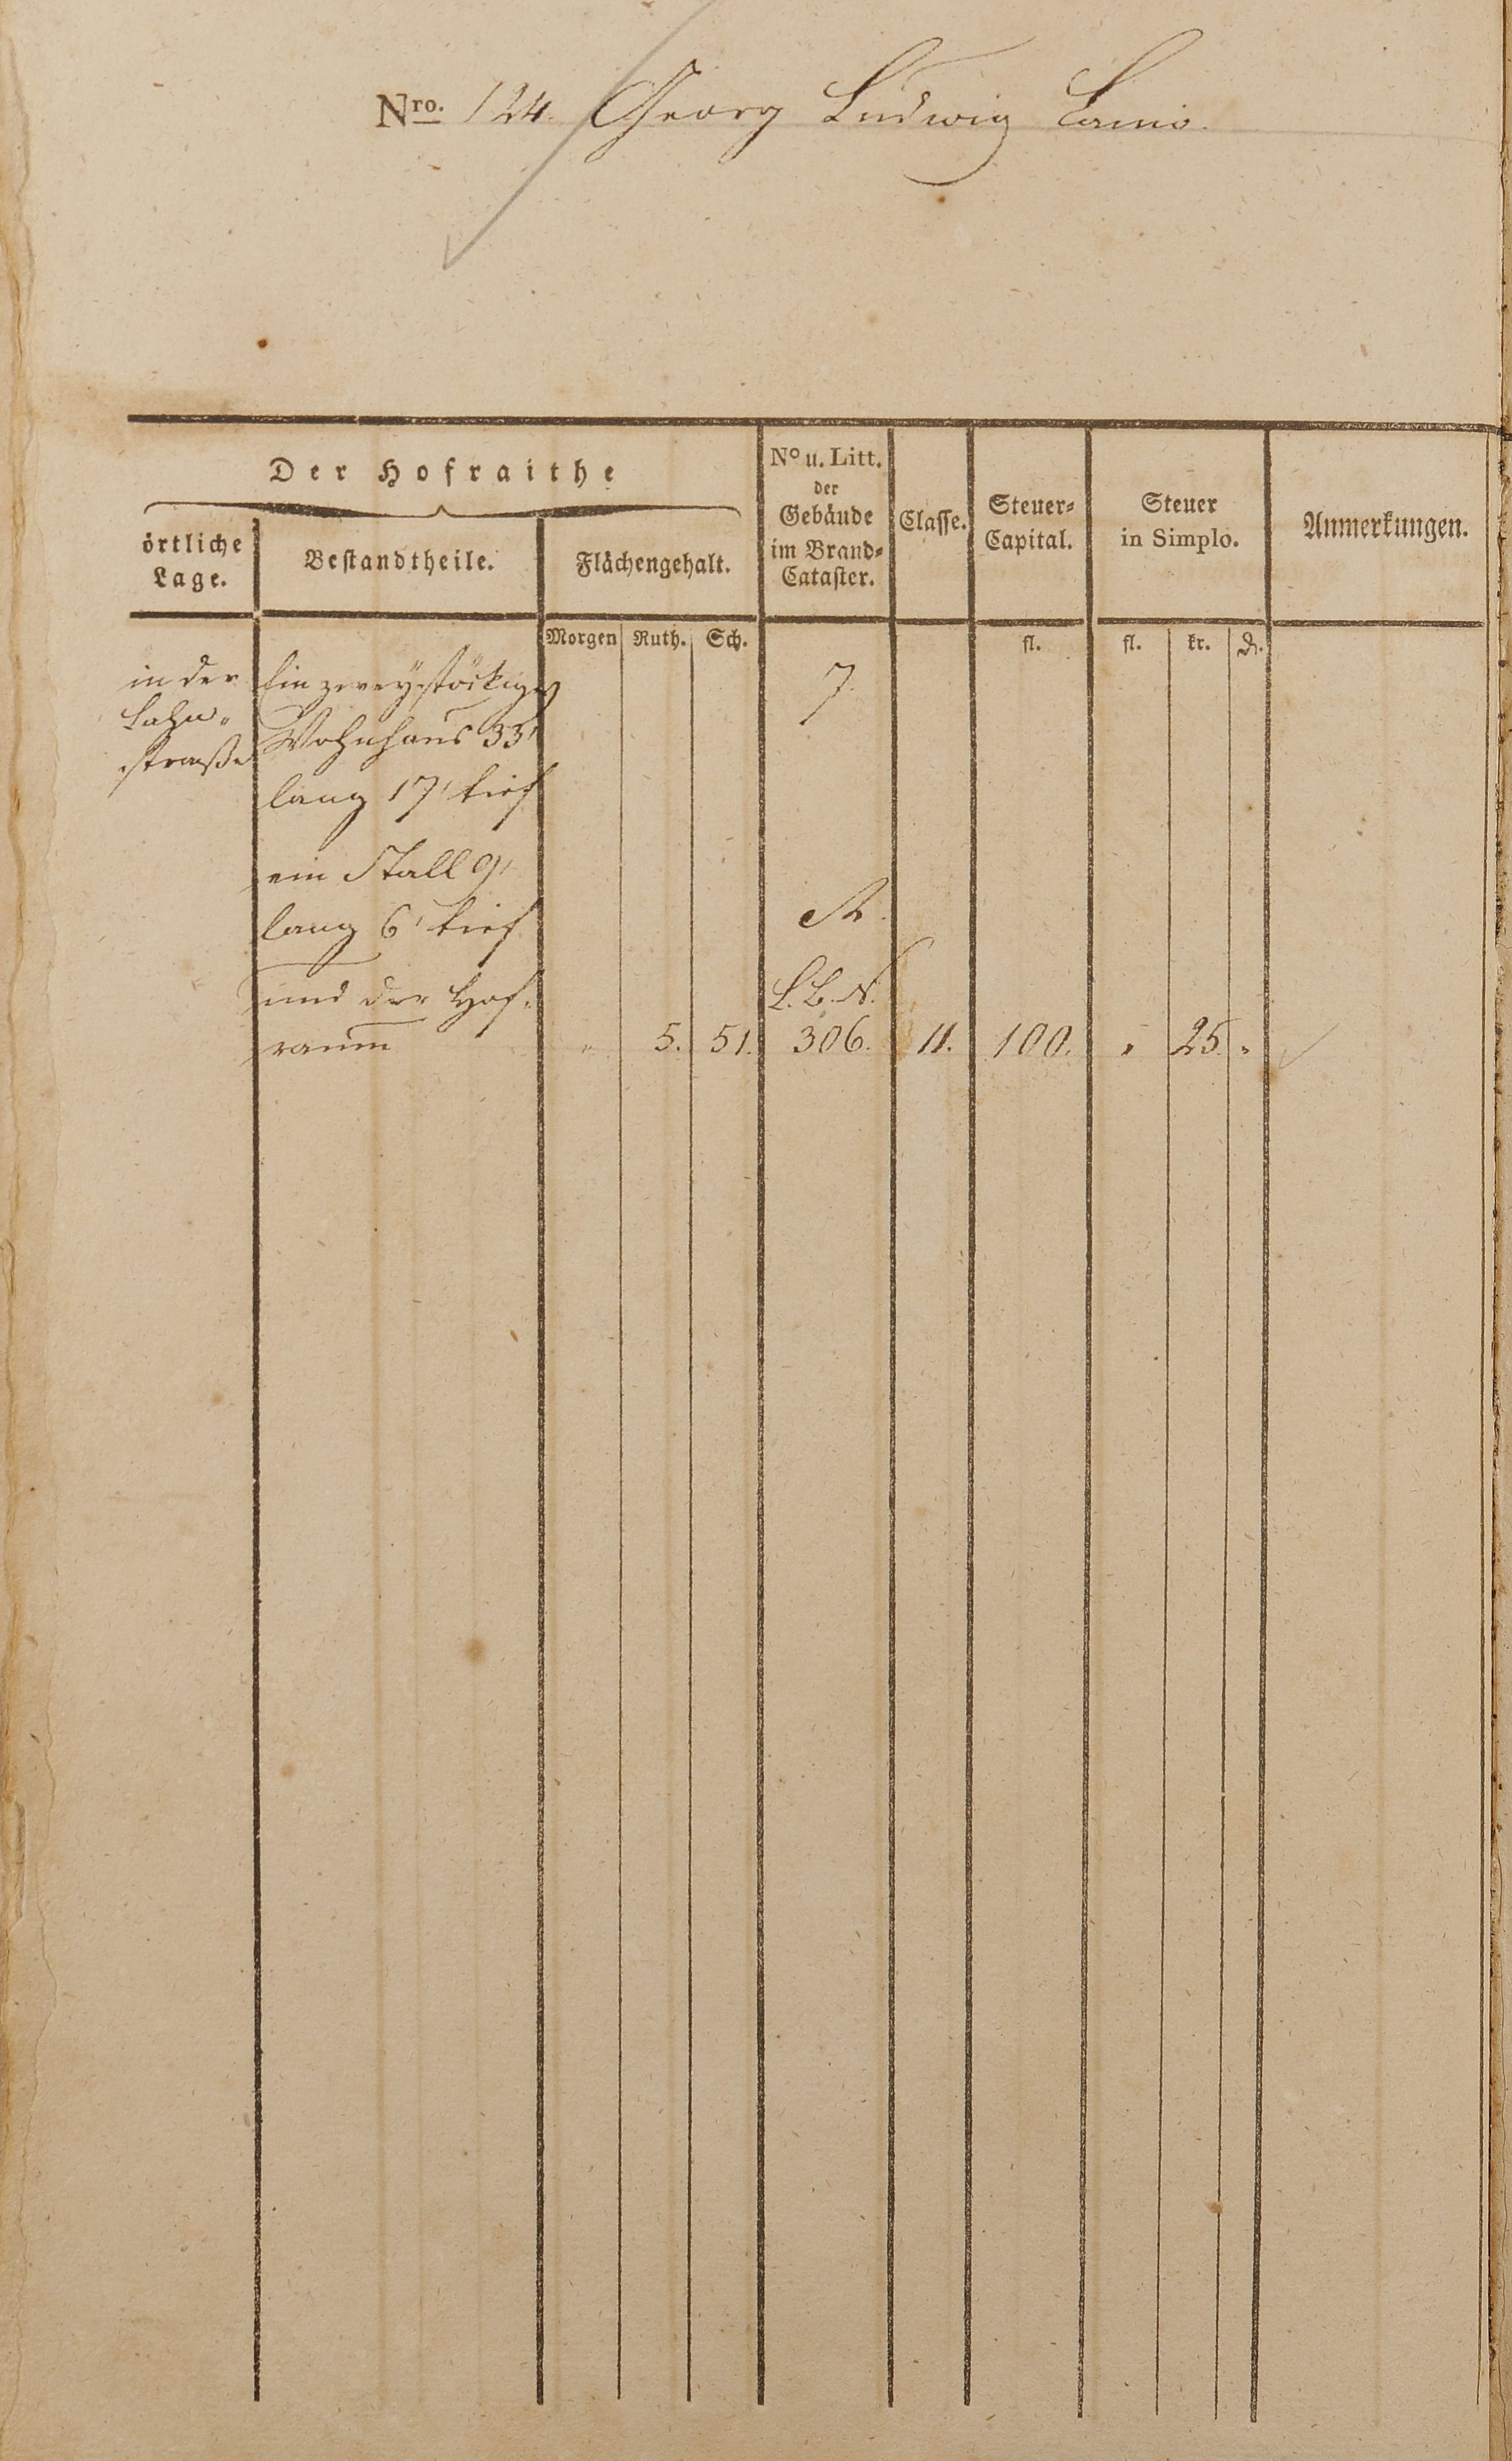 Nro. 124. Georg Ludwig
Der Hofraithe
örtliche Lage.
Bestandtheile.
Flächengehalt.
No u. Litt. der Gebäude im Brand-Cataster.
Classe.
Steuer-Capital.
Steuer in Simplo.
Anmerkungen.
Morgen Ruth. Sch. fl. fl. kr. d.
in der Ein zweystöckiges 7.
Lahn-
straße Wohnhaus 33'
lang 17' tief
ein Stall 9'
lang 6' tief A.
und der Hof- L. B. N.
raum " 5. 51. 306. 11. 100. " 25. "